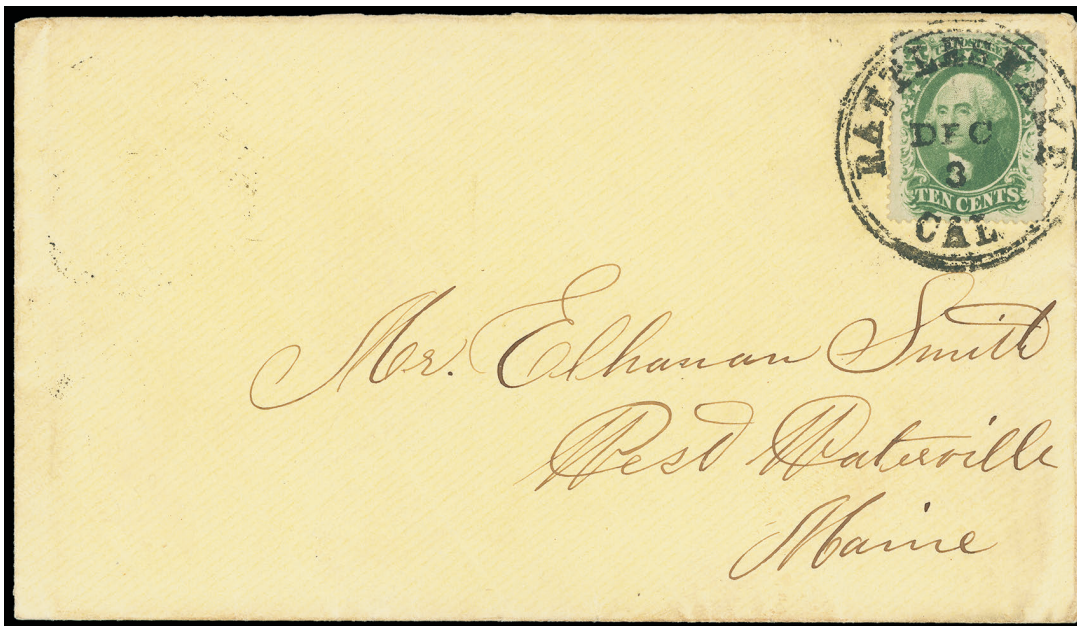 RATTLESNAKE
DEC
3
TEN CENTS
CAL
Mr. Elhanan Smith
West Waterville
Maine